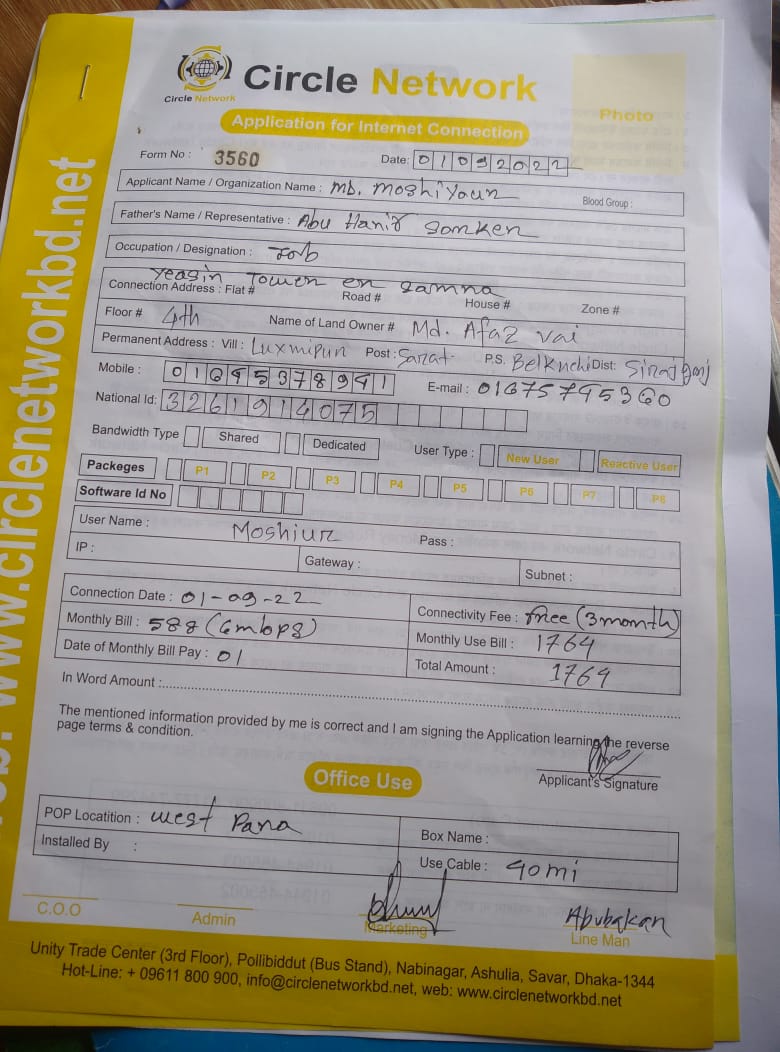 Circle Network
Circle Network
Application for Internet Connection
Photo
Form No : 3560
Date: 01092022
Applicant Name / Organization Name : Md. Moshiyour
Blood Group :
Father's Name / Representative : Abu Hanif Sarker
Occupation / Designation : Job
Yeasin Tower er samna
Connection Address : Flat # Road # House # Zone #
Floor # 4th Name of Land Owner # Md. Afaz vai
Permanent Address : Vill : Luxmipur Post : P.S. Belkuchi Dist: Sirajgonj
Mobile : 01695378941 E-mail : 01675795360
National Id: 3261914075
Bandwidth Type Shared Dedicated User Type : New User Reactive User
Packeges P1 P2 P3 P4 P5 P6 P7 P8
Software Id No
User Name : Moshiur Pass :
IP : Gateway : Subnet :
Connection Date : 01-09-22 Connectivity Fee : free (3 month)
Monthly Bill : 588 (6mbps) Monthly Use Bill : 1764
Date of Monthly Bill Pay : 01 Total Amount : 1764
In Word Amount :
The mentioned information provided by me is correct and I am signing the Application learning the reverse
page terms & condition.
Applicant's Signature
Office Use
POP Locatition : west Para Box Name :
Installed By : Use Cable : 90mi
C.O.O Admin Marketing Abubakar
Line Man
Unity Trade Center (3rd Floor), Pollibiddut (Bus Stand), Nabinagar, Ashulia, Savar, Dhaka-1344
Hot-Line: + 09611 800 900, info@circlenetworkbd.net, web: www.circlenetworkbd.net
www.circlenetworkbd.net